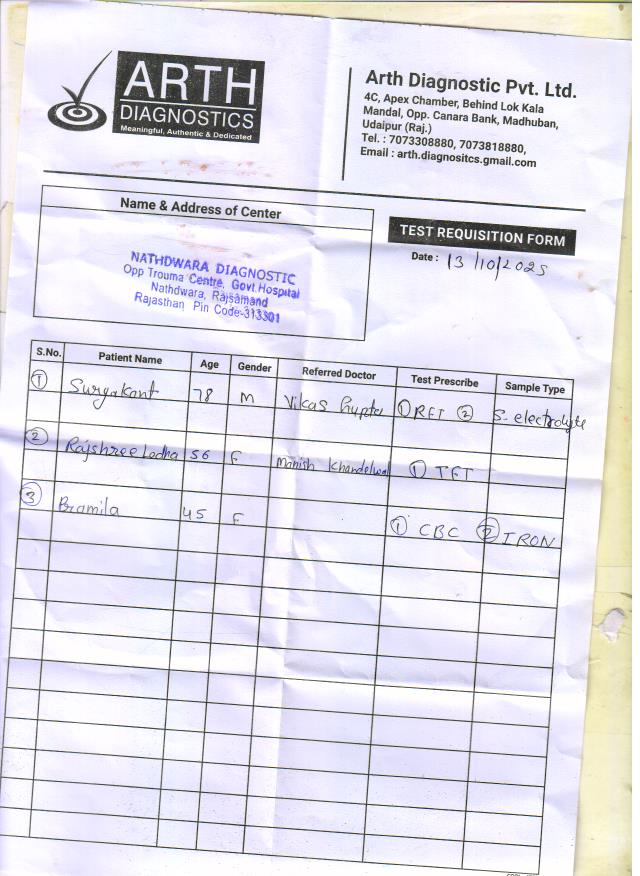 ARTH
DIAGNOSTICS
Meaningful, Authentic & Dedicated
Arth Diagnostic Pvt. Ltd.
4C, Apex Chamber, Behind Lok Kala
Mandal, Opp. Canara Bank, Madhuban,
Udaipur (Raj.)
Tel. : 7073308880, 7073818880,
Email : arth.diagnositcs.gmail.com
Name & Address of Center
NATHDWARA DIAGNOSTIC
Opp Trouma Centre, Govt. Hospital
Nathdwara, Rajsamand
Rajasthan Pin Code-313301
TEST REQUISITION FORM
Date : 13/10/2025
S.No. Patient Name Age Gender Referred Doctor Test Prescribe Sample Type
1 Suryakant 78 M Vikas Gupta 1 RFT 2 S. electrolyte
2 Rajshree Lodha 56 F Manish Khandelwal 1 TFT
3 Pramila 45 F 1 CBC 2 IRON